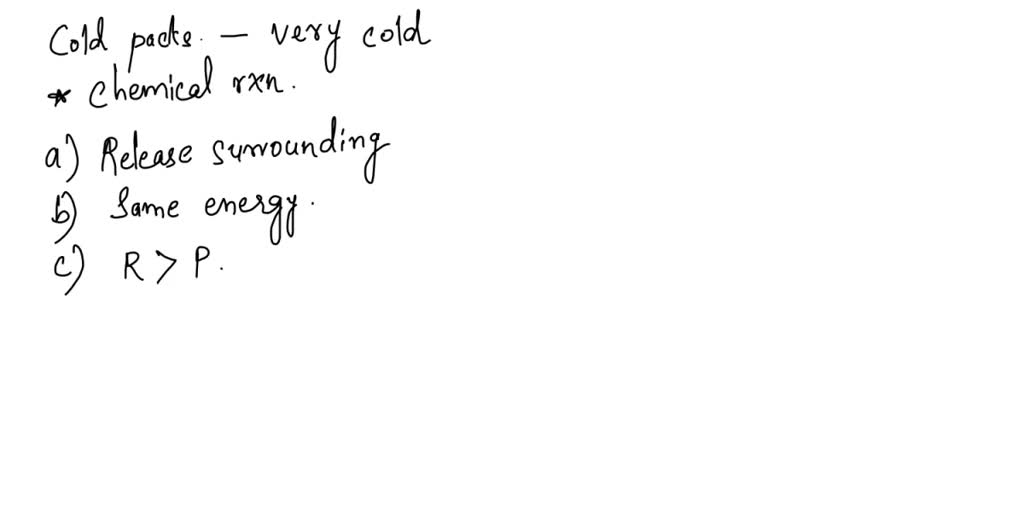 Cold packs. - very cold
* Chemical rxn.
a) Release surrounding
b) Same energy.
c) R > P.